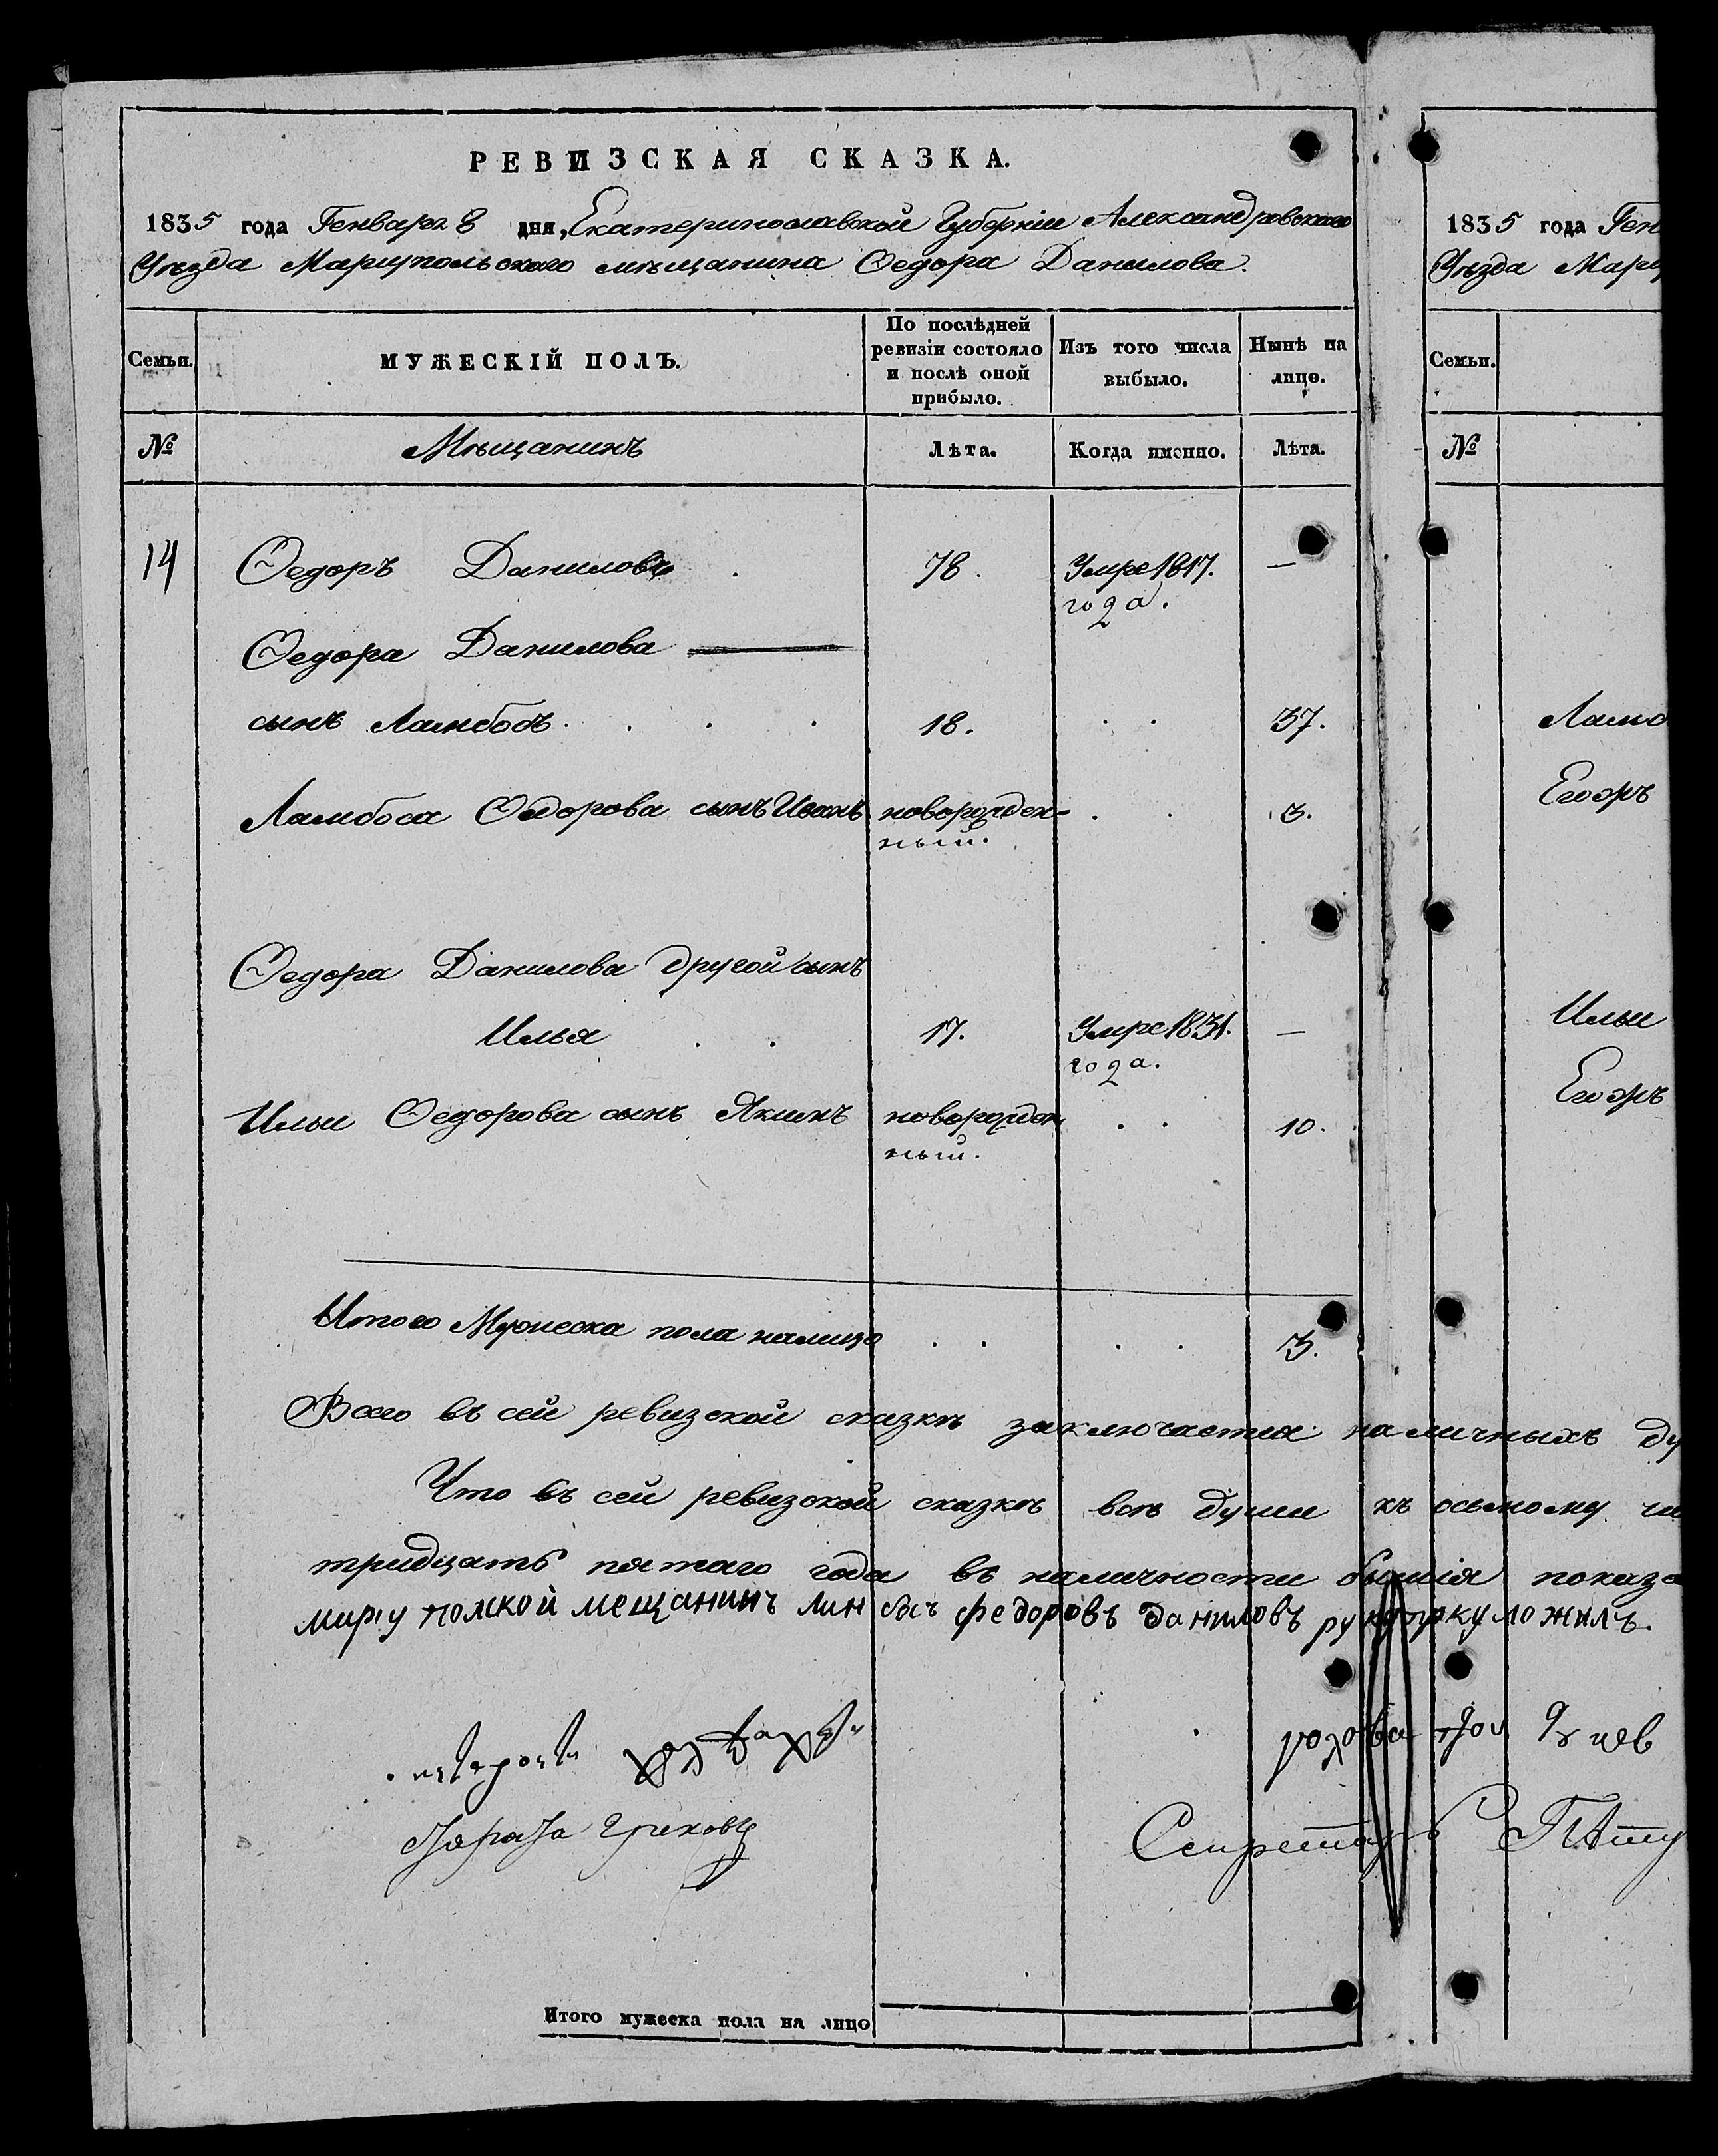 РЕВИЗСКАЯ СКАЗКА.
1835 года Генваря 8 дня, Екатеринославской Губерніи Александровскаго
Уѣзда Маріупольскаго мѣщанина Ѳедора Данилова.
Семьи.
МУЖЕСКІЙ ПОЛЪ.
По послѣдней ревизіи состояло и послѣ оной прибыло.
Изъ того числа выбыло.
Нынѣ на лицо.
№ Мѣщанинъ Лѣта. Когда именно. Лѣта.
14 Ѳедоръ Даниловъ 78. Умре 1817. —
года.
Ѳедора Данилова —
сынъ Ламбосъ 18. 37.
Ламбоса Ѳедорова сынъ Иванъ новорожден- 3.
ный.
Ѳедора Данилова другой сынъ
Илья 17. Умре 1831. —
года.
Ильи Ѳедорова сынъ Якимъ новорожден 10.
ный.
Итого Мужеска пола налицо 3.
Всего въ сей ревизской сказкѣ заключается наличныхъ ду
Что въ сей ревизской сказкѣ всѣ души къ осьмому чи
тридцать пятаго года въ наличности бывшія показа
мещанинъ федоровъ даниловъ
Секретарь
Итого мужеска пола на лицо
1835 года Ген
Уѣзда Мару
Семьи.
№
Ламб
Егожъ
Ильи
Егожъ